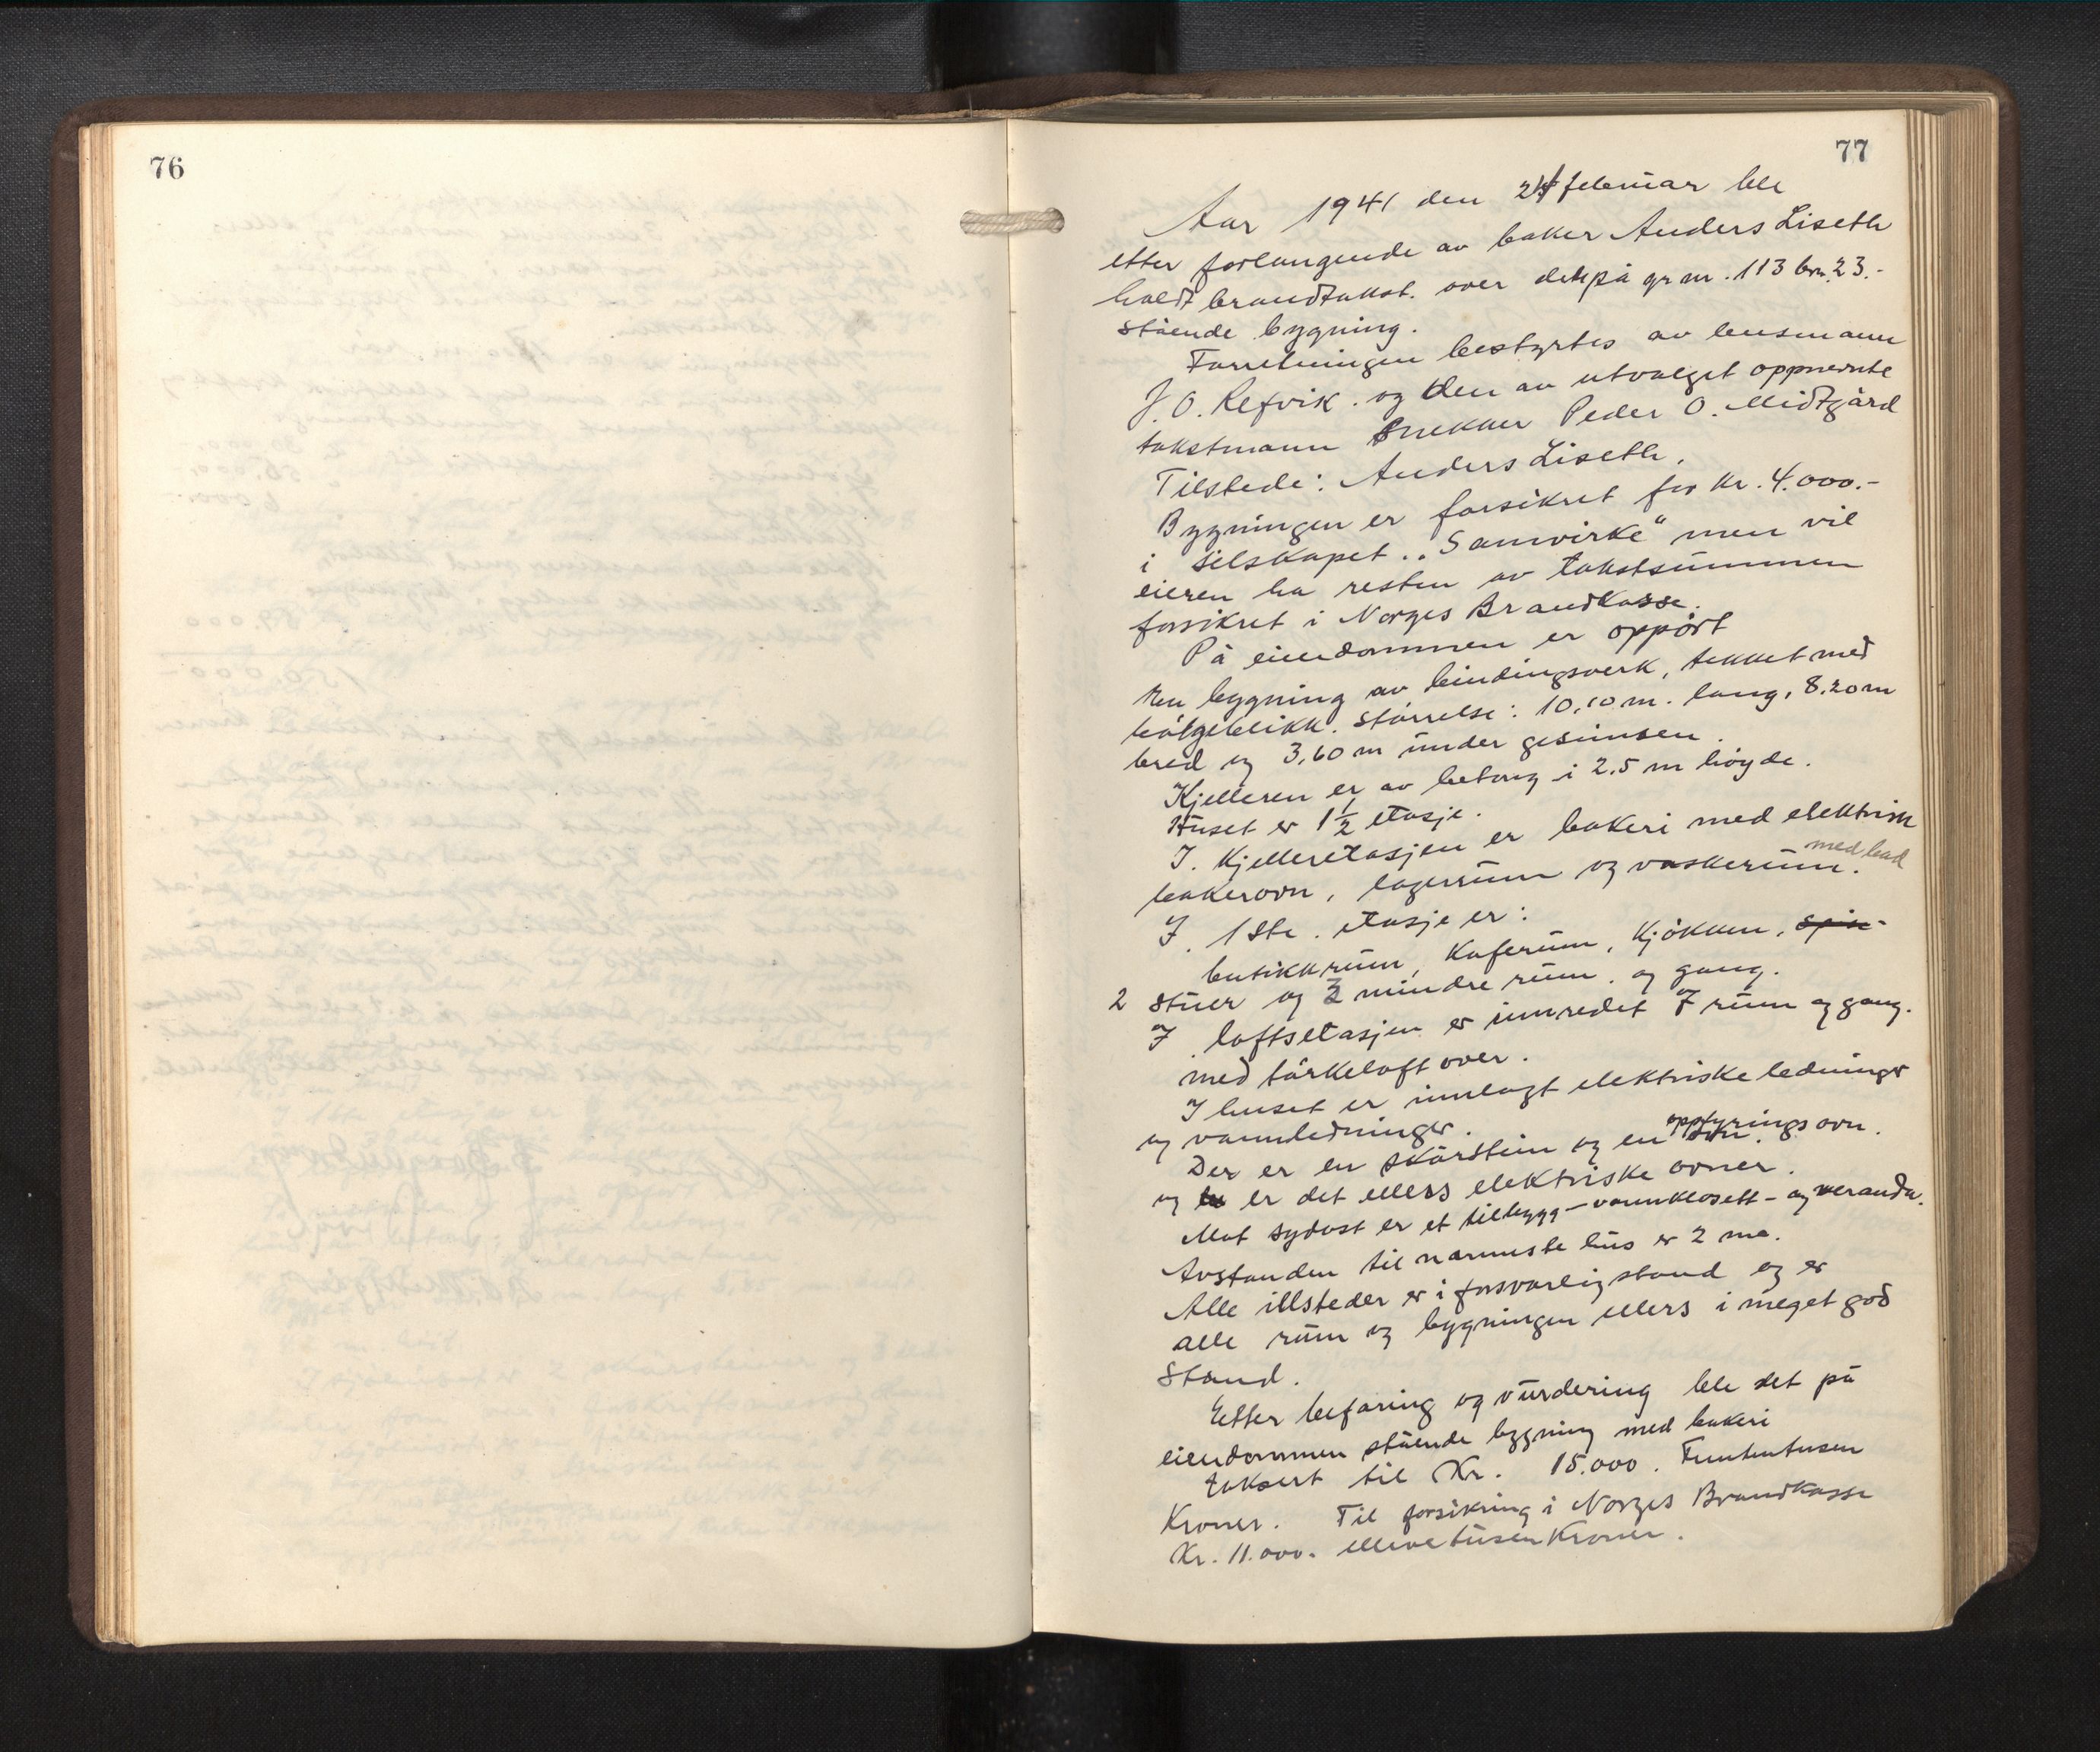 76
77
Aar 1941 den 24 februar ble
etter forlangende av baker Anders Liseth
holdt brandtakst over det på gr nr. 113 brn. 23.-
stående bygning.
Forretningen bestyrtes av lensmann
J. O. Refvik. og den av utvalget oppnevnte
takstmann Snekker Peder O. Midtgård
Tilstede: Anders Liseth.
Bygningen er forsikret for Kr. 4.000.-
i selskapet „Samvirke" men vil
eieren ha resten av takstsummen
forsikret i Norges Brandkasse.
På eiendommen er oppört
en bygning av bindingsverk, tekket med
bölgeblikk. Störrelse: 10,10 m. lang, 8,20 m
bred og 3,60 m under gesimsen.
Kjelleren er av betong i 2,5 m höyde.
Huset er 1 1/2 etasje.
I. Kjelleretasjen er bakeri med elektrisk
bakerovn, lagerrum og vaskerum. med bad
I. 1ste. etasje er:
butikkrum, Kaferum, Kjökken, spise-
2 stuer og 2 mindre rum. og gang.
I loftsetasjen er innredet 7 rum og gang.
med törkeloft over.
I huset er innlagt elektriske ledninger
og vannledninger.
Der er en skårstein og en oppfyrings ovn.
og er det ellers elektriske ovner.
Mot sydost er et tilbygg - vannklosett - og veranda.
Avstanden til nærmeste hus er 2 m.
Alle illsteder er i forsvarlig stand og er
alle rum og bygningen ellers i meget god
Stand.
Etter befaring og vurdering ble det på
eiendommen stående bygning med bakeri
taksert til Kr. 15.000. Femtentusen
Kroner. Til forsikring i Norges Brandkasse
Kr. 11.000. ellevetusen Kroner.